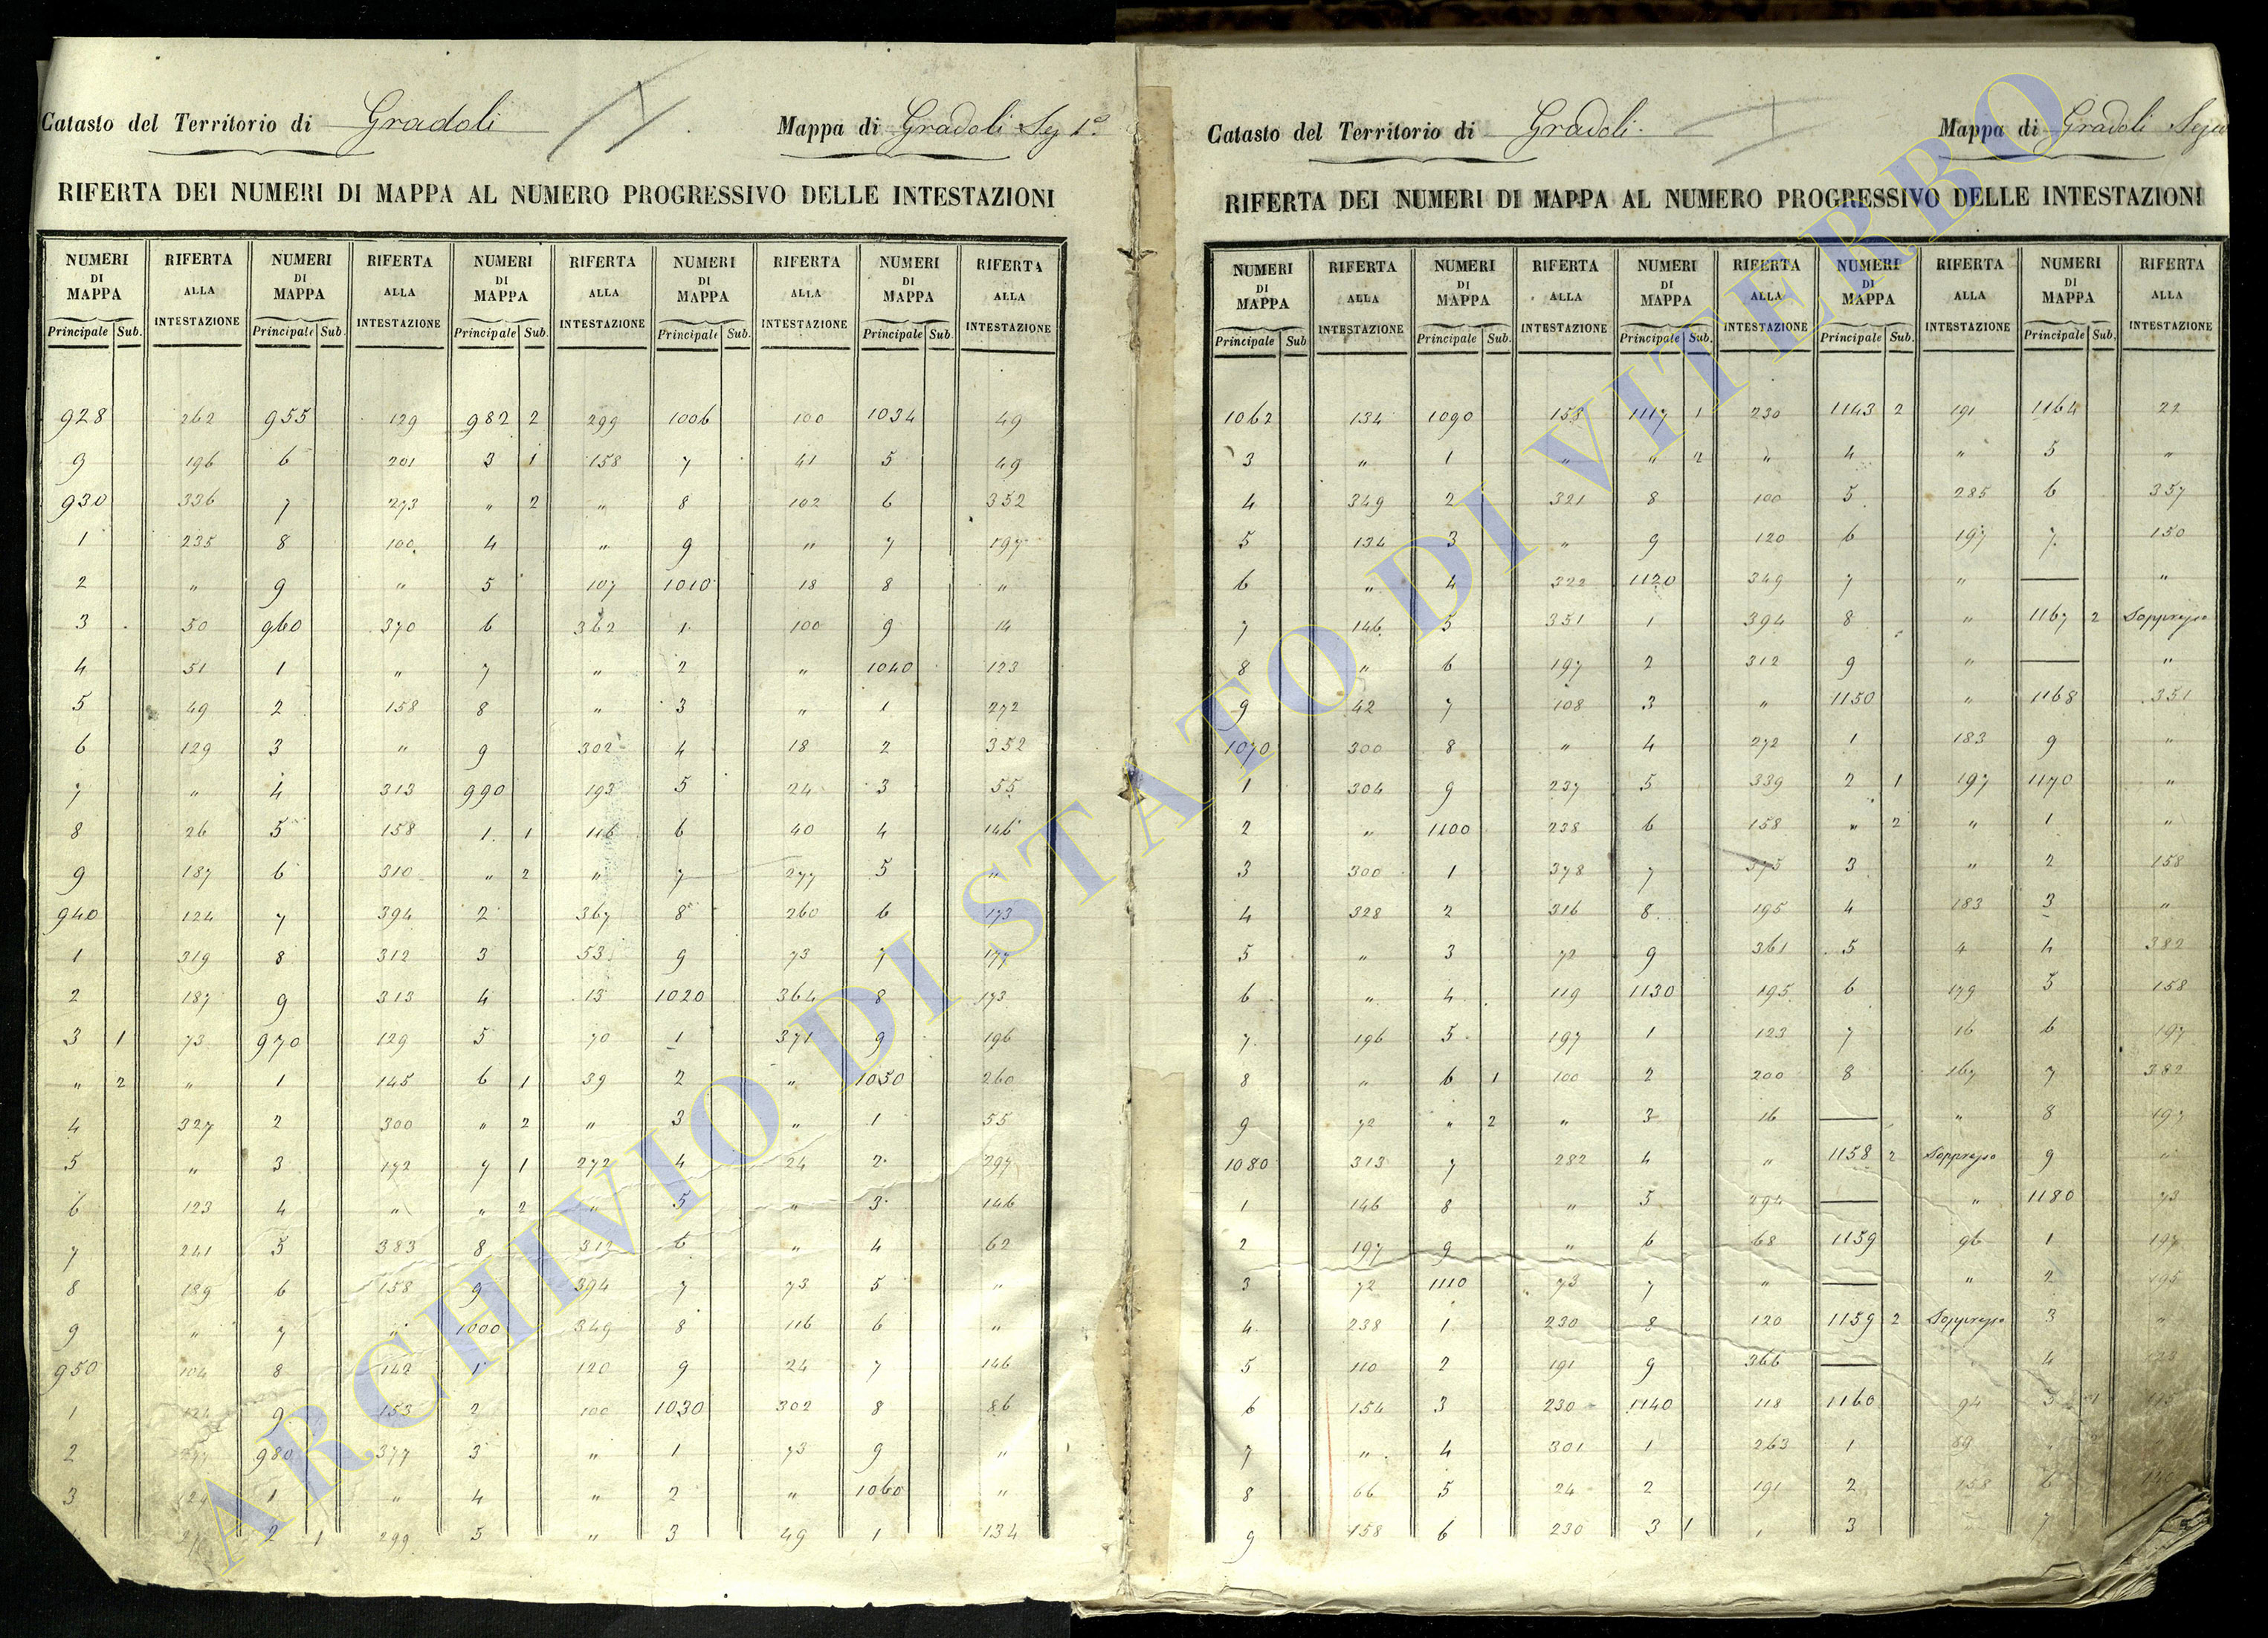 Catasto del Territorio di Gradoli Mappa di Gradoli Seg 1ª
RIFERTA DEI NUMERI DI MAPPA AL NUMERO PROGRESSIVO DELLE INTESTAZIONI
NUMERI RIFERTA NUMERI RIFERTA NUMERI RIFERTA NUMERI RIFERTA NUMERI RIFERTA
DI ALLA DI ALLA DI ALLA DI ALLA DI ALLA
MAPPA INTESTAZIONE MAPPA INTESTAZIONE MAPPA INTESTAZIONE MAPPA INTESTAZIONE MAPPA INTESTAZIONE
Principale Sub. Principale Sub Principale Sub. Principale Sub. Principale Sub.
928 262 955 129 982 2 299 1006 100 1034 49
9 196 6 201 3 1 158 7 41 5 49
930 336 7 273 " 2 " 8 102 6 352
1 235 8 100 4 " 9 " 7 197
2 " 9 " 5 107 1010 18 8 "
3 50 960 370 6 362 1 100 9 14
4 51 1 " 7 " 2 " 1040 123
5 49 2 158 8 " 3 " 1 272
6 129 3 " 9 302 4 18 2 352
7 " 4 313 990 193 5 24 3 55
8 26 5 158 1 1 116 6 40 4 146
9 187 6 310 " 2 " 7 277 5 "
940 124 7 394 2 367 8 260 6 173
1 319 8 312 3 53 9 73 7 177
2 187 9 313 4 13 1020 364 8 173
3 1 73 970 129 5 70 1 371 9 196
" 2 " 1 145 6 1 39 2 " 1050 260
4 327 2 300 " 2 " 3 " 1 55
5 " 3 172 7 1 272 4 24 2 297
6 123 4 " " 2 " 5 " 3 146
7 241 5 383 8 312 6 " 4 62
8 189 6 158 9 394 7 73 5 "
9 " 7 " 1000 349 8 116 6 "
950 104 8 142 1 120 9 24 7 146
1 124 9 153 2 100 1030 302 8 86
2 980 377 3 " 1 73 9 "
3 1 " 4 " 2 " 1060 "
2 1 299 5 " 3 49 1 134
Catasto del Territorio di Gradoli. Mappa di Gradoli
RIFERTA DEI NUMERI DI MAPPA AL NUMERO PROGRESSIVO DELLE INTESTAZIONI
NUMERI RIFERTA NUMERI RIFERTA NUMERI RIFERTA NUMERI RIFERTA NUMERI RIFERTA
DI ALLA DI ALLA DI ALLA DI ALLA DI ALLA
MAPPA INTESTAZIONE MAPPA INTESTAZIONE MAPPA INTESTAZIONE MAPPA INTESTAZIONE MAPPA INTESTAZIONE
Principale Sub Principale Sub. Principale Sub. Principale Sub. Principale Sub.
1062 134 1090 158 1117 1 230 1143 2 191 1164 22
3 " 1 " " 2 " 4 " 5 "
4 349 2 321 8 100 5 285 6 357
5 134 3 " 9 120 6 197 7 150
6 " 4 322 1120 349 7 " — "
7 146 5 351 1 394 8 " 1167 2 Soppresso
8 " 6 197 2 312 9 " — "
9 42 7 108 3 " 1150 " 1168 351
1070 300 8 " 4 272 1 183 9 "
1 304 9 237 5 339 2 1 197 1170 "
2 " 1100 238 6 158 " 2 " 1 "
3 300 1 378 7 375 3 " 2 158
4 328 2 316 8 195 4 183 3 "
5 " 3 72 9 361 5 4 4 382
6 " 4 119 1130 195 6 179 5 158
7 196 5 197 1 123 7 16 6 197
8 " 6 1 100 2 200 8 167 7 382
9 72 " 2 " 3 16 — " 8 197
1080 313 7 282 4 " 1158 2 Soppresso 9 "
1 146 8 " 5 294 — " 1180 73
2 197 9 " 6 68 1159 96 1 197
3 72 1110 73 7 " — " 2 195
4 238 1 230 8 120 1159 2 Soppresso 3 "
5 110 2 191 9 366 — 4
6 154 3 230 1140 118 1160 94 5 1
7 " 4 301 1 263 1 89
8 66 5 24 2 191 2 158 6
9 158 6 230 3 1 3 7
ARCHIVIO DI STATO DI VITERBO